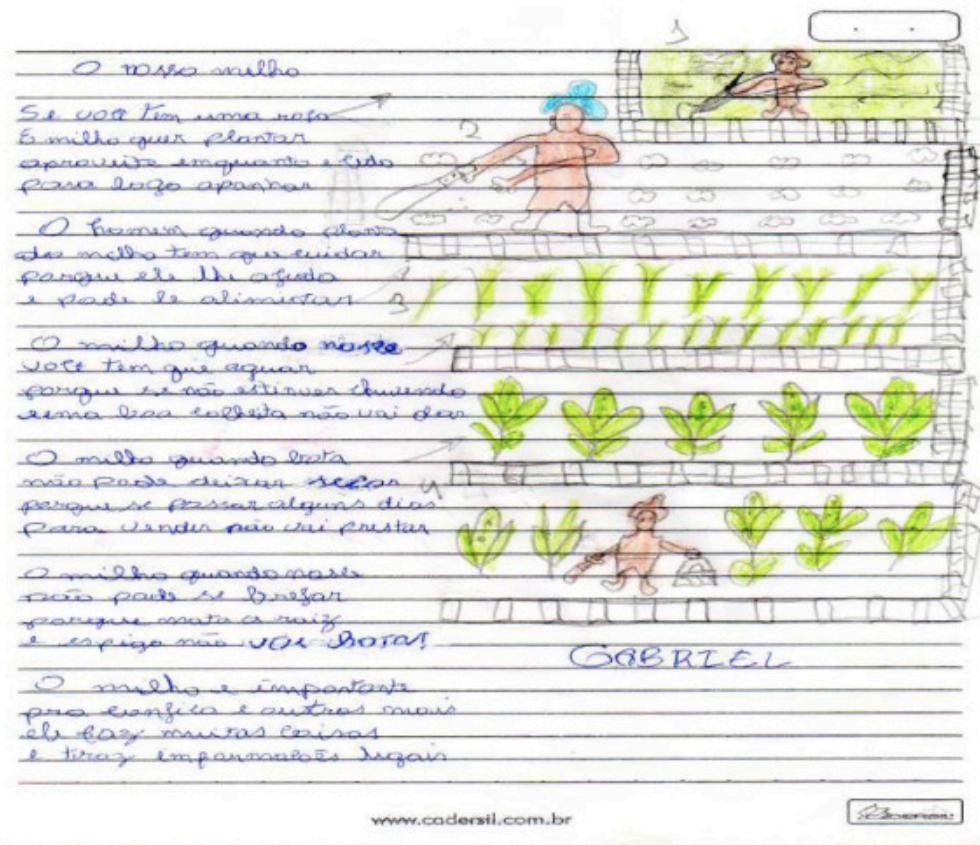 1
O nosso milho
Se você tem uma roça
E milho quer plantar
aproveite enquanto e sedo
para logo apanhar
2
O homem quando planta
des milho tem que cuidar
porque ele lhe ajuda
e pode le alimentar
3
O milho quando nasce
você tem que aguar
porque se não estinver chuvendo
uma boa colheita não vai dar
O milho quando bota
não pode deixar secar
porque se passar alguns dias
para vender não vai prestar
4
O milho quando nase
não pode se brejar
porque mata a raiz
e espiga não vai botar
GABRIEL
O milho e importante
pra e outros mais
ele faz muitas coisas
e traz legais
www.cadersil.com.br